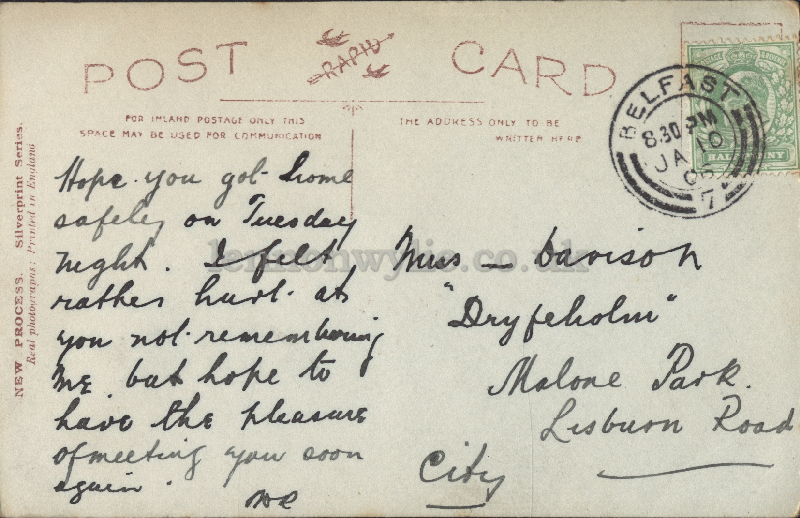 POST CARD
RAPID
FOR INLAND POSTAGE ONLY THIS
SPACE MAY BE USED FOR COMMUNICATION
THE ADDRESS ONLY TO BE
WRITTEN HERE
NEW PROCESS. Silverprint Series.
Real photographs: Printed in England
BELFAST
8.30 PM
JA 10
7
HALFPENNY
Hope you got home
safely on Tuesday
night. I felt
rather hurt at
you not remembering
me but hope to
have the pleasure
of meeting you soon
again.
Miss — Davison
"Dryfeholm"
Malone Park.
Lisburn Road
City
lennonwylie.co.uk